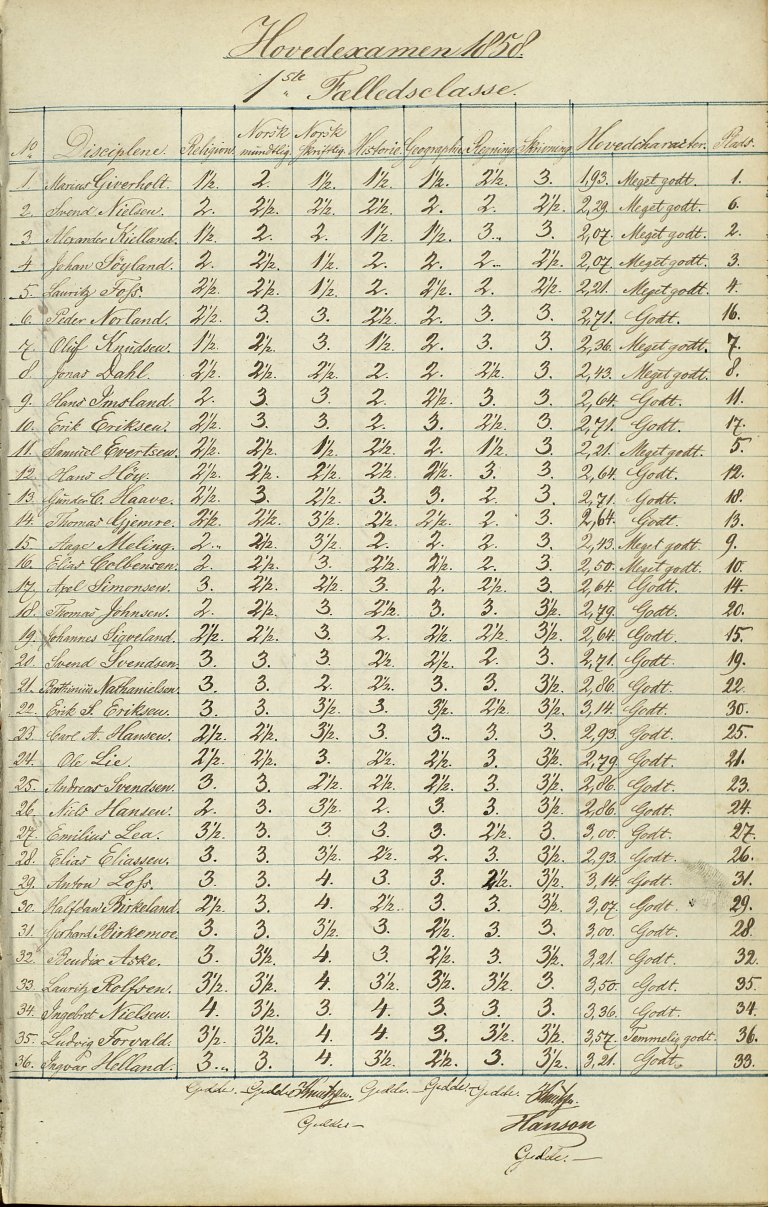 Hovedexamen 1858.
1ste Fælledsclasse.
No. Disciplene. Religion. Norsk mündtlig. Norsk skriftlig. Historie. Geographi. Regning. Skrivning. Hovedcharacter. Plads.
1. Marius Giverholt. 1½. 2. 1½. 1½. 1½. 2½. 3. 1,93. Meget godt. 1.
2. Svend Nielsen. 2. 2½. 2½. 2½. 2. 2. 2½. 2,29. Meget godt. 6.
3. Alexander Kielland. 1½. 2. 2. 1½. 1½. 3. 3. 2,07. Meget godt. 2.
4. Johan Söyland. 2. 2½. 1½. 2. 2. 2. 2½. 2,07. Meget godt. 3.
5. Lauritz Foss. 2½. 2½. 1½. 2. 2½. 2. 2½. 2,21. Meget godt. 4.
6. Peder Norland. 2½. 3. 3. 2½. 2. 3. 3. 2,71. Godt. 16.
7. Oluf Knudsen. 1½. 2½. 3. 1½. 2. 3. 3. 2,36. Meget godt. 7.
8. Jonas Dahl. 2½. 2½. 2½. 2. 2. 2½. 3. 2,43. Meget godt. 8.
9. Hans Imsland. 2. 3. 3. 2. 2½. 3. 3. 2,64. Godt. 11.
10. Erik Eriksen. 2½. 3. 3. 2. 3. 2½. 3. 2,71. Godt. 17.
11. Samuel Evertsen. 2½. 2½. 1½. 2½. 2. 1½. 3. 2,21. Meget godt. 5.
12. Hans Höy. 2½. 2½. 2½. 2½. 2½. 3. 3. 2,64. Godt. 12.
13. Gunder C. Haave. 2½. 3. 2½. 3. 3. 2. 3. 2,71. Godt. 18.
14. Thomas Gjemre. 2½. 2½. 3½. 2½. 2½. 2. 3. 2,64. Godt. 13.
15. Aage Meling. 2. 2½. 3½. 2. 2. 2. 3. 2,43. Meget godt. 9.
16. Elias Colbensen. 2. 2½. 3. 2½. 2½. 2. 3. 2,50. Meget godt. 10.
17. Axel Simonsen. 3. 2½. 2½. 3. 2. 2½. 3. 2,64. Godt. 14.
18. Thomas Johnsen. 2. 2½. 3. 2½. 3. 3. 3½. 2,79. Godt. 20.
19. Johannes Sigveland. 2½. 2½. 3. 2. 2½. 2½. 3½. 2,64. Godt. 15.
20. Svend Svendsen. 3. 3. 3. 2½. 2½. 2. 3. 2,71. Godt. 19.
21. Nathanielsen. 3. 3. 2. 2½. 3. 3. 3½. 2,86. Godt. 22.
22. Erik S. Eriksen. 3. 3. 3½. 3. 3½. 2½. 3½. 3,14. Godt. 30.
23. Carl A. Hansen. 2½. 2½. 3½. 3. 3. 3. 3. 2,93. Godt. 25.
24. Ole Lie. 2½. 2½. 3. 2½. 2½. 3. 3½. 2,79. Godt. 21.
25. Andreas Svendsen. 3. 3. 2½. 2½. 2½. 3. 3½. 2,86. Godt. 23.
26. Niels Hansen. 2. 3. 3½. 2. 3. 3. 3½. 2,86. Godt. 24.
27. Emilius Lea. 3½. 3. 3. 3. 3. 2½. 3. 3,00. Godt. 27.
28. Elias Eliassen. 3. 3. 3½. 2½. 2. 3. 3½. 2,93. Godt. 26.
29. Anton Loss. 3. 3. 4. 3. 3. 2½. 3½. 3,14. Godt. 31.
30. Halfdan Birkeland. 2½. 3. 4. 2½. 3. 3. 3½. 3,07. Godt. 29.
31. Gerhard Birkemoe. 3. 3. 3½. 3. 2½. 3. 3. 3,00. Godt. 28.
32. Bendix Aske. 3. 3½. 4. 3. 2½. 3. 3½. 3,21. Godt. 32.
33. Lauritz Rolfsen. 3½. 3½. 4. 3½. 3½. 3½. 3. 3,50. Godt. 35.
34. Ingebret Nielsen. 4. 3½. 3. 4. 3. 3. 3. 3,36. Godt. 34.
35. Ludvig Forvald. 3½. 3½. 4. 4. 3. 3½. 3½. 3,57. Temmelig godt. 36.
36. Ingvar Helland. 3. 3. 4. 3½. 2½. 3. 3½. 3,21. Godt. 33.
Gedde. Gedde. Gedde. Gedde. Gedde.
Gedde. Hanson
Gedde.